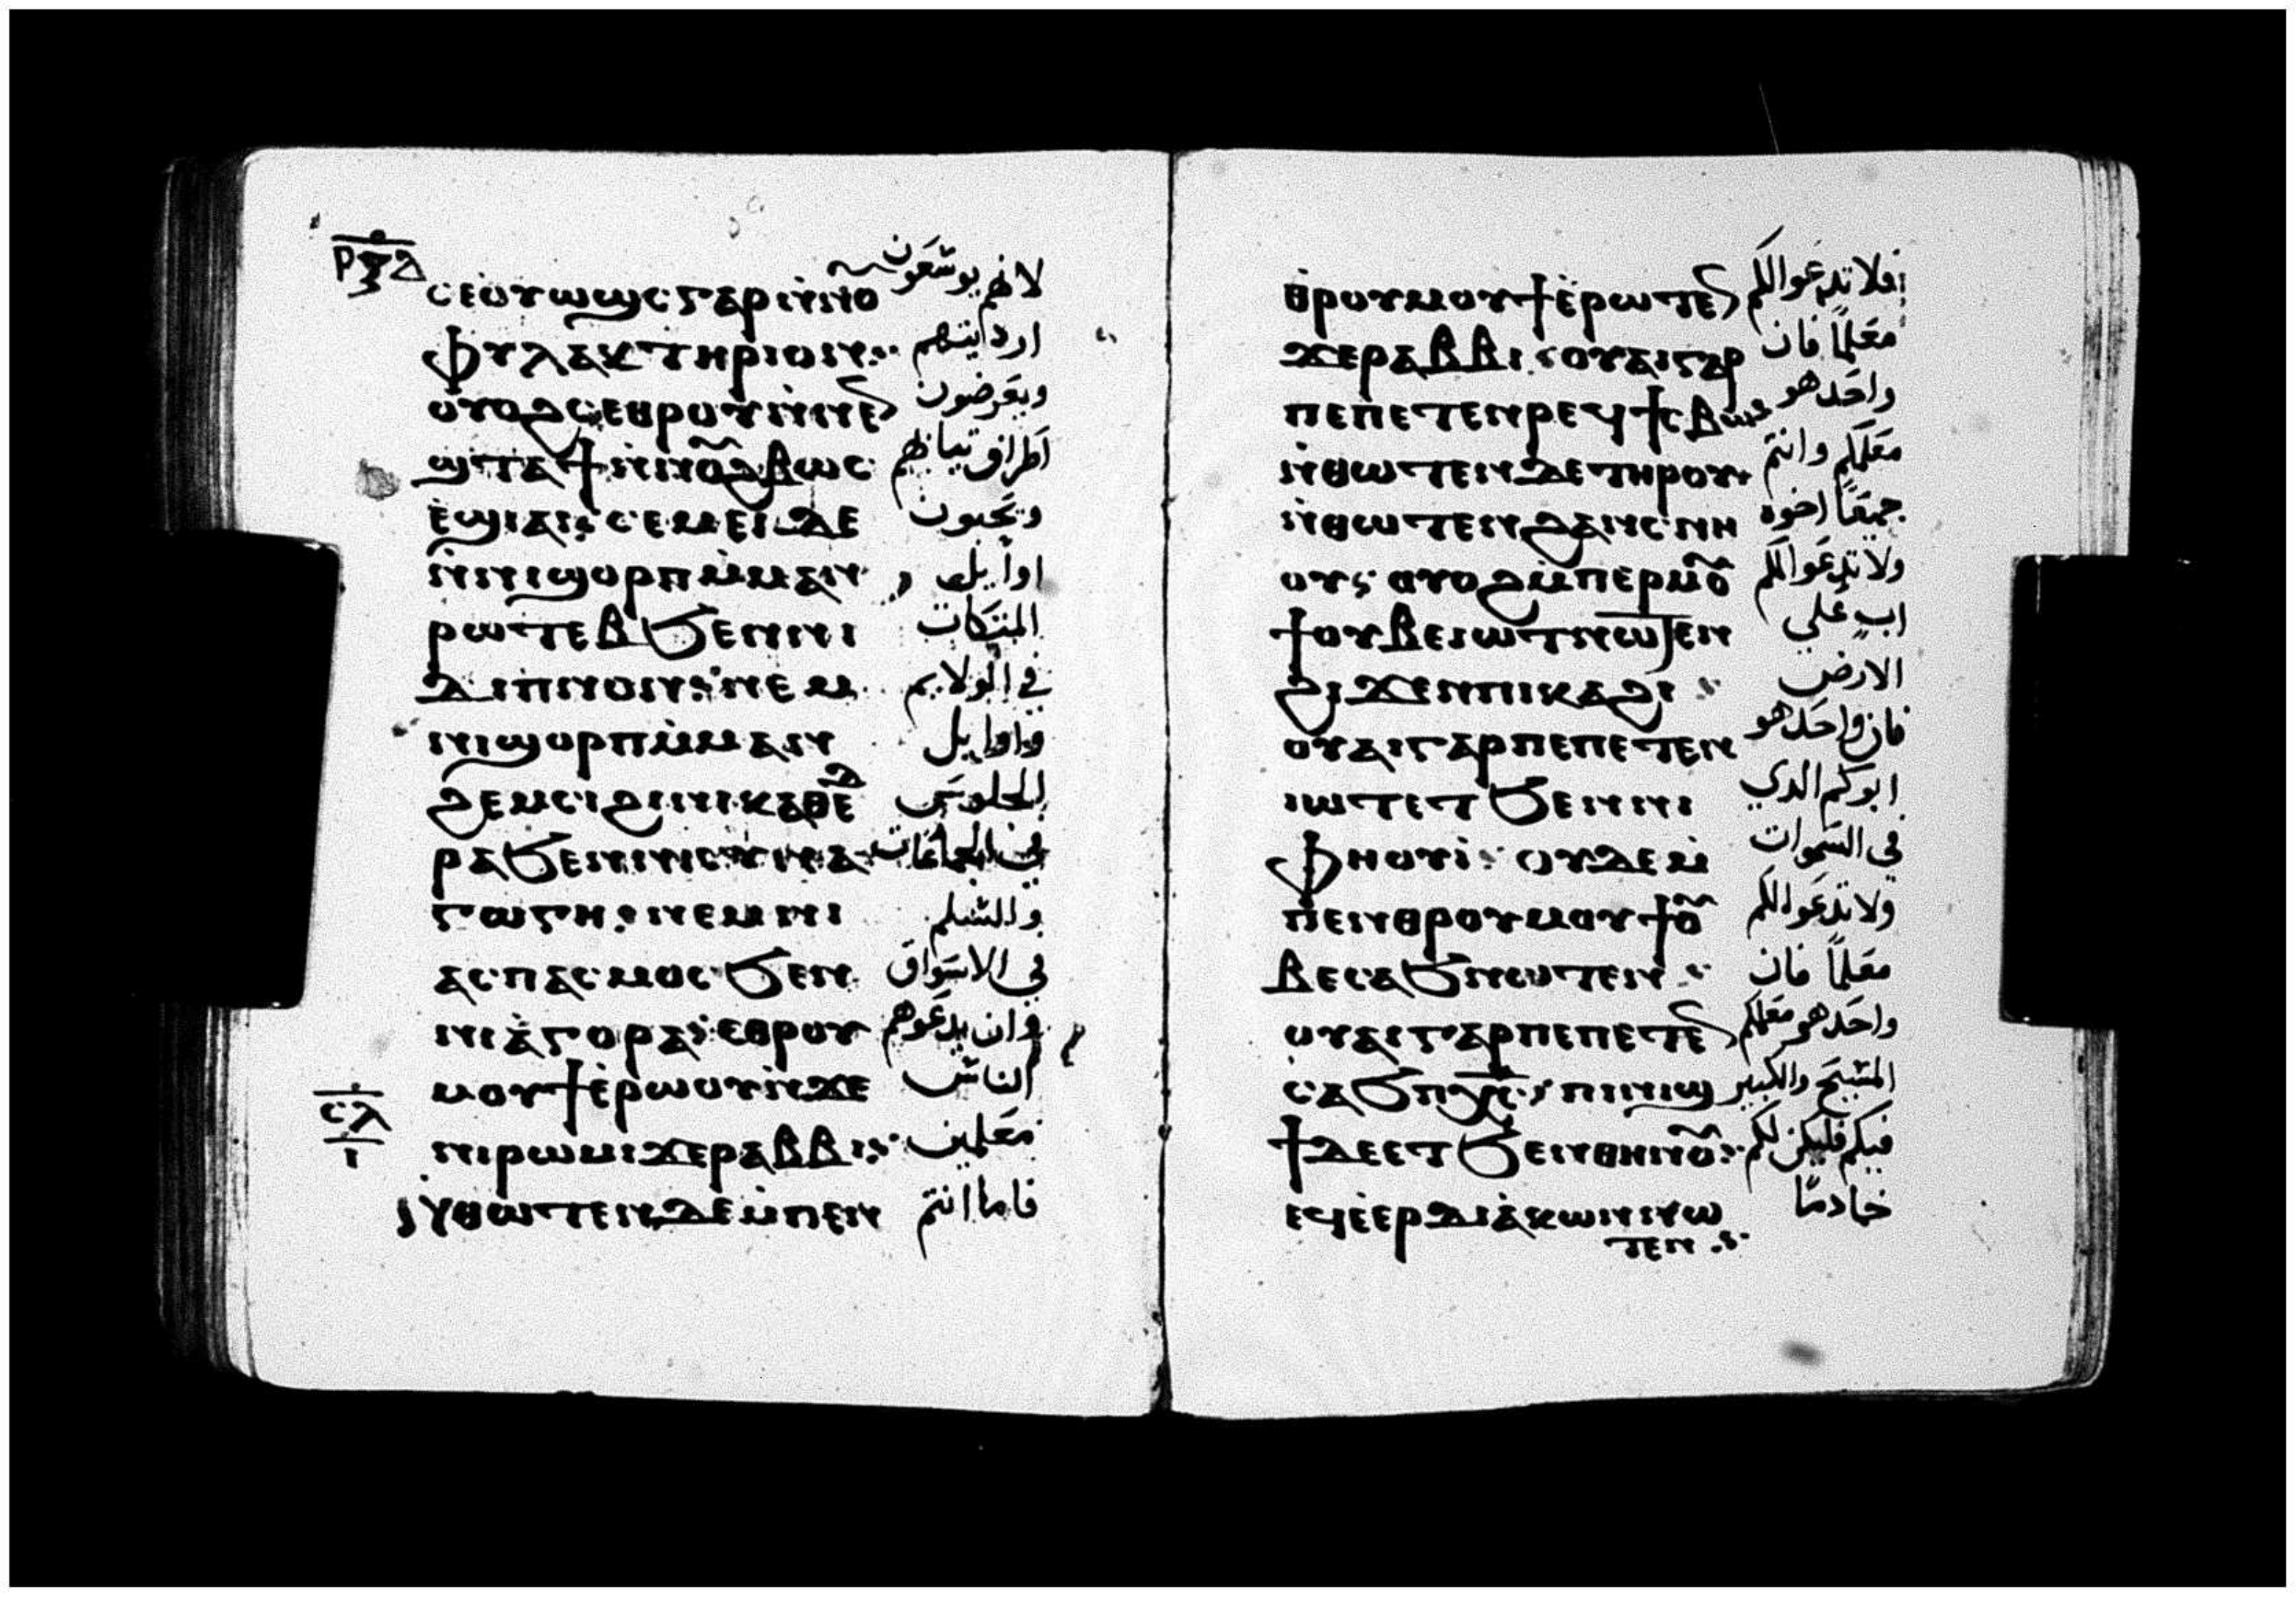 ⲣⲝⲇ
ⲥⲉⲟⲩⲱϣⲥ ⲅⲁⲣ ⲛ̀ⲛⲟ لانهم يوسعون
ⲫⲩⲗⲁⲕⲧⲏⲣⲓⲟⲛ: ارديتهم
ⲟⲩⲟϩ ⲥⲉⲑⲣⲟⲩⲛ̀ⲛⲉ ويعرضون
ϣⲧⲁϯ ⲛ̀ⲛⲟ̃ϩⲃⲱⲥ اطراف تيابهم
ⲉ̀ϣⲓⲁⲓ: ⲥⲉⲙⲉⲓ ⲇⲉ ويحبون
ⲛ̀ⲛⲓϣⲟⲣⲡ ⲙ̀ⲙⲁⲛ اوايل
ⲣⲱⲧⲉⲃ ϧⲉⲛ ⲛⲓ المتكات
ⲇⲓⲡⲛⲟⲛ: ⲛⲉⲙ في الولايم
ⲛⲓϣⲟⲣⲡ ⲙ̀ⲙⲁⲛ واوايل
ϩⲉⲙⲥⲓ ϩⲓ ⲛⲓⲕⲁⲑⲉⲇ الجلوس
ⲣⲁ ϧⲉⲛ ⲛⲓⲥⲩⲛⲁ في المجامعات
ⲅⲱⲅⲏ: ⲛⲉⲙ ⲛⲓ والسلم
ⲁⲥⲡⲁⲥⲙⲟⲥ ϧⲉⲛ في الاسواق
ⲛⲓⲁ̀ⲅⲟⲣⲁ: ⲉⲑⲣⲟⲩ وان يدعوهم
ⲙⲟⲩϯ ⲉ̀ⲣⲱⲟⲩ ⲛ̀ϫⲉ الناس
ⲥⲗ
ⲓ
ⲛⲓⲣⲱⲙⲓ ϫⲉ ⲣⲁⲃⲃⲓ: معلمين
ⲛ̀ⲑⲱⲧⲉⲛ ⲇⲉ ⲙ̀ⲡⲉⲛ فاما انتم
ⲑ̀ⲣⲟⲩⲙⲟⲩϯ ⲉ̀ⲣⲱⲧⲉ افلا تدعوا لكم
ϫⲉ ⲣⲁⲃⲃⲓ: ⲟⲩⲁⲓ ⲅⲁⲣ معلمًا فان
ⲡⲉ ⲡⲉⲧⲉⲛⲣⲉϥϯⲥⲃⲱ: واحد هو
ⲛ̀ⲑⲱⲧⲉⲛ ⲇⲉ ⲧⲏⲣⲟⲩ معلمكم وانتم
ⲛ̀ⲑⲱⲧⲉⲛ ϩⲁⲛⲥⲛⲏ جميعًا اخوه
ⲟⲩ: ⲟⲩⲟϩ ⲙ̀ⲡⲉⲣⲙⲟ̃ ولا تدعوا لكم
ϯ ⲟⲩⲃⲉ ⲓⲱⲧ ⲛⲱⲧⲉⲛ اب علي
ϩⲓϫⲉⲛ ⲡⲓⲕⲁϩⲓ: الارض
ⲟⲩⲁⲓ ⲅⲁⲣ ⲡⲉ ⲡⲉⲧⲉⲛ فان واحد هو
ⲓⲱⲧ ⲉⲧ ϧⲉⲛ ⲛⲓ ابوكم الدي
ⲫⲏⲟⲩⲓ̀: ⲟⲩⲇⲉ ⲙ̀ في السموات
ⲡⲉⲛⲑⲣⲟⲩⲙⲟⲩϯ ⲟ̃ ولا تدعوا لكم
ⲃⲉ ⲥⲁϧ ⲛⲱⲧⲉⲛ: معلمًا فان
ⲟⲩⲁⲓ ⲅⲁⲣ ⲡⲉ ⲡⲉⲧⲉ واحد هو معلمكم
ⲥⲁϧ ⲡⲭ̅ⲥ̅: ⲡⲓⲛⲓϣ المسيح والكبير
ϯ ⲇⲉ ⲉⲧ ϧⲉⲛ ⲑⲏⲛⲟ̃: فيكم فليكن لكم
ⲉϥⲉ̀ⲉⲣⲇⲓⲁ̀ⲕⲱⲛ ⲛⲱ خادمًا
ⲧⲉⲛ: